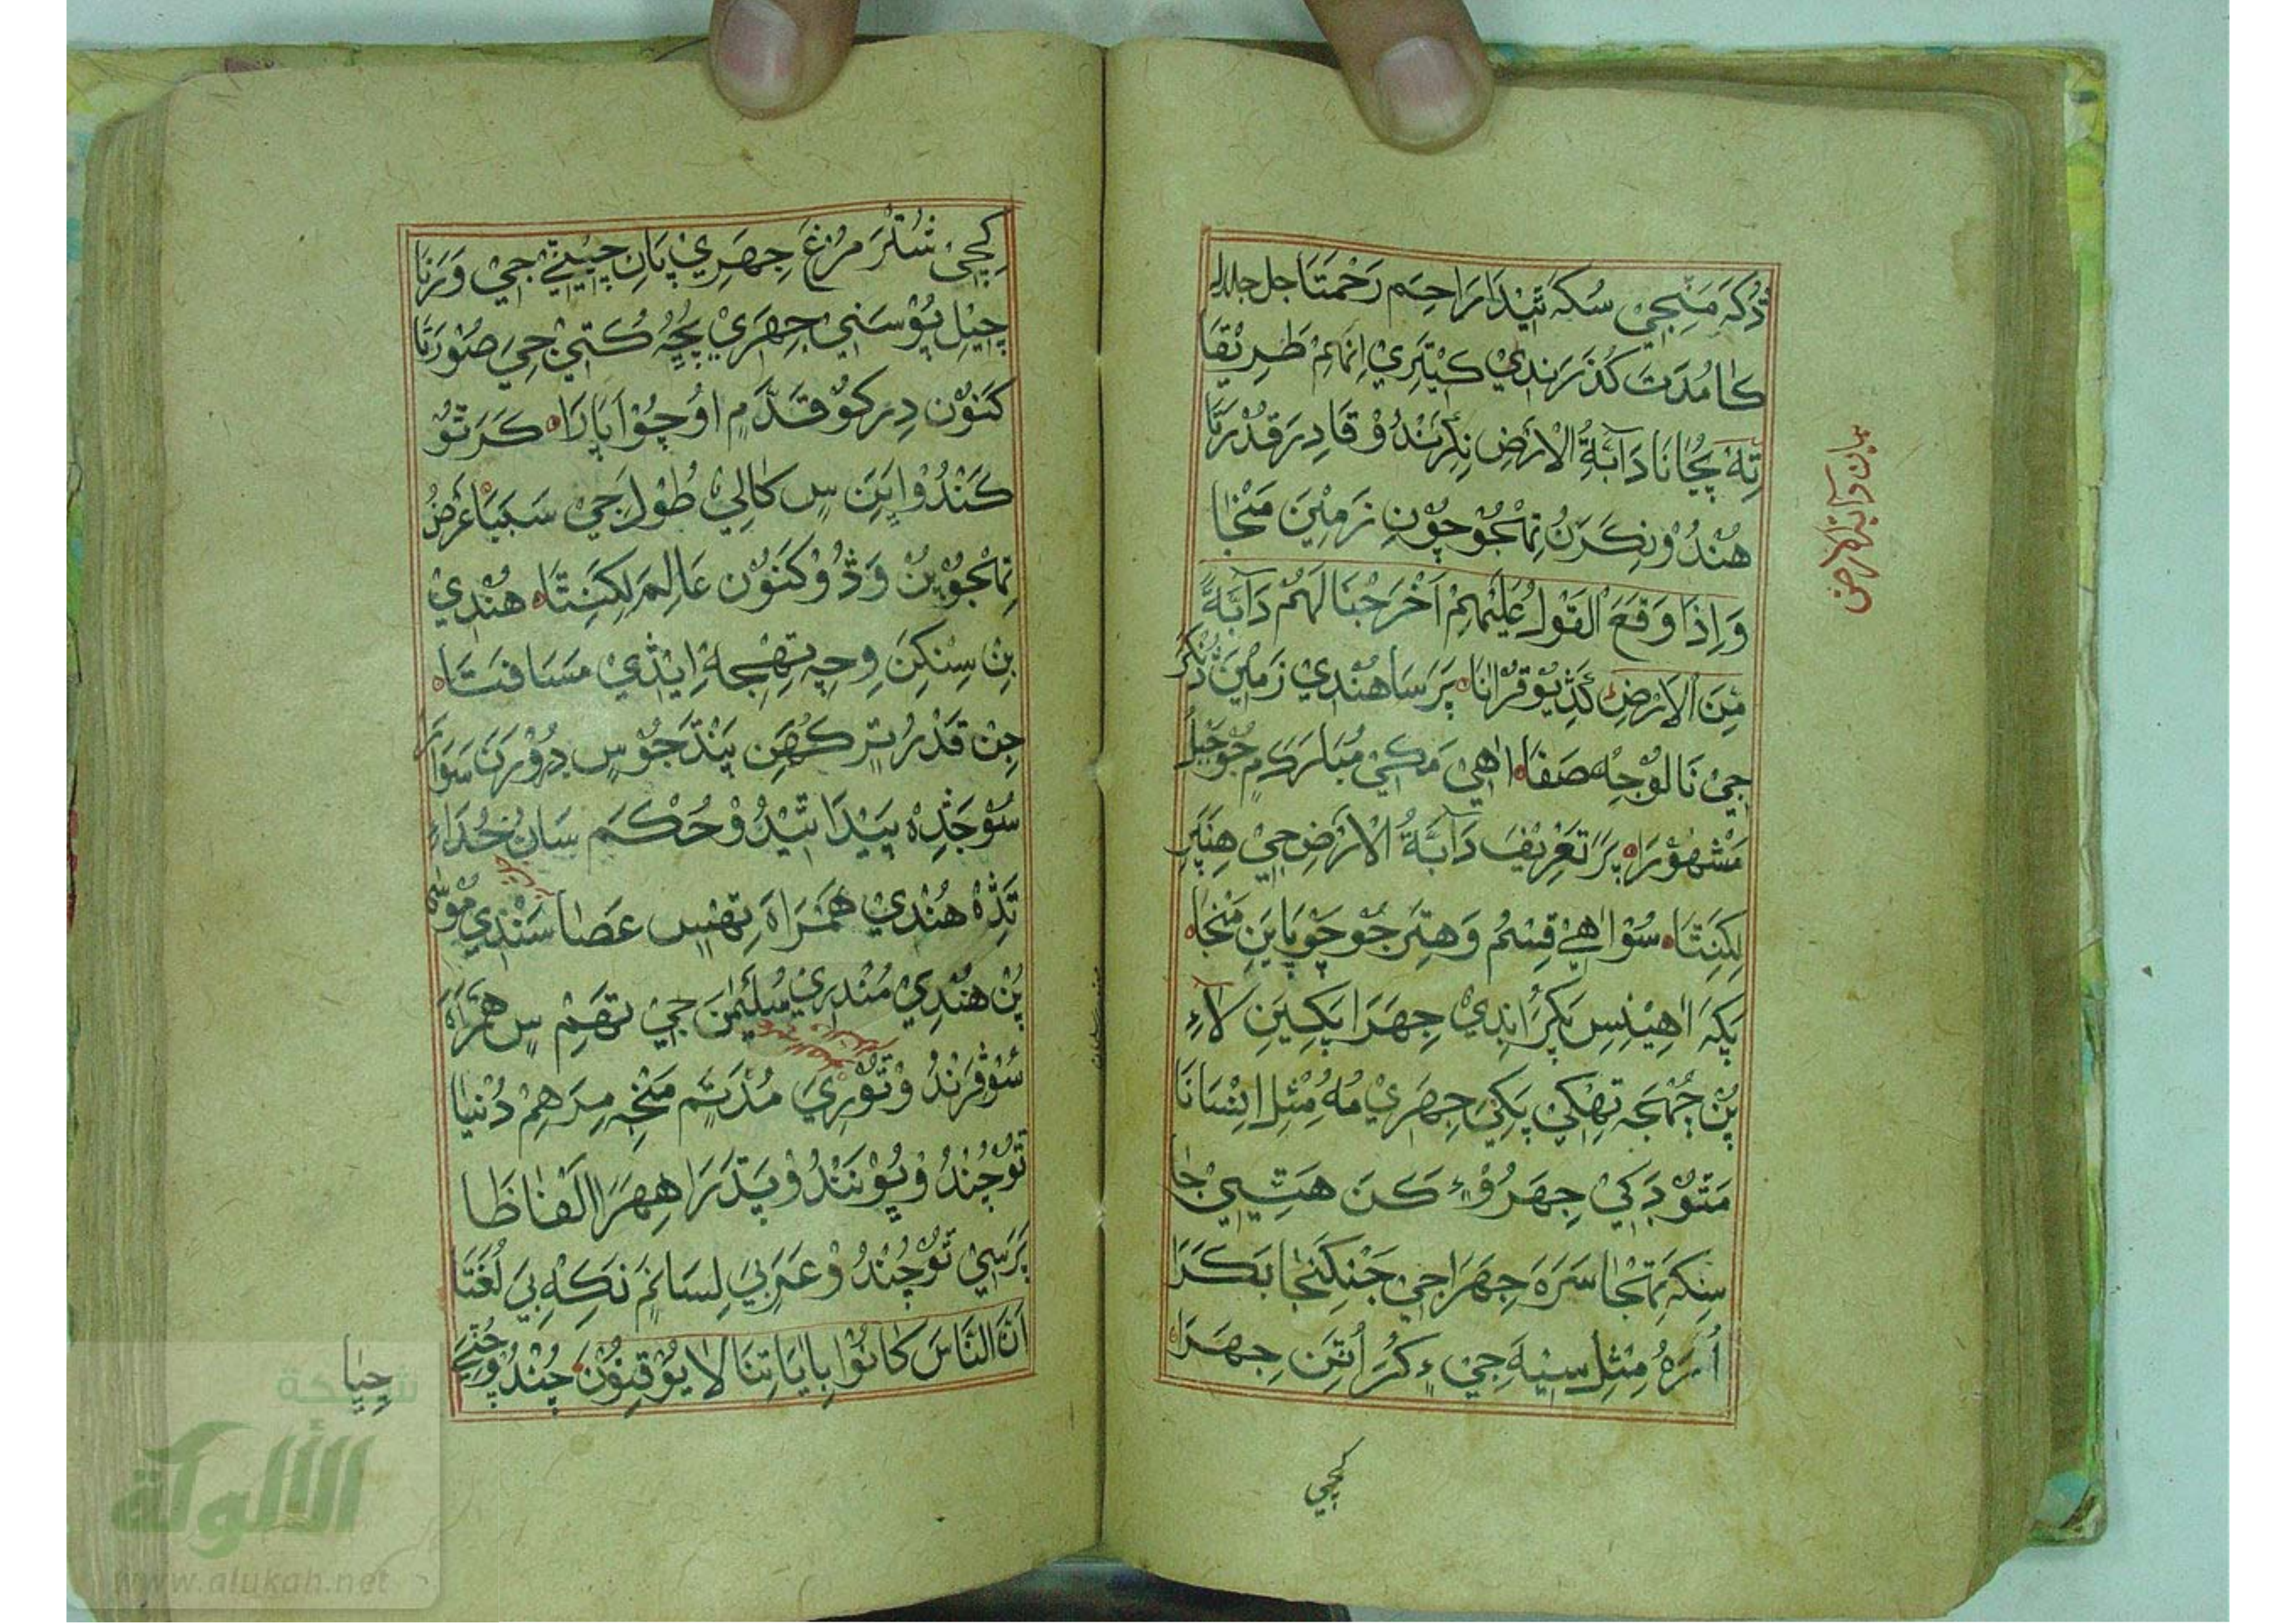 ڏُکَہ مَنِجِيْ سُکہَ ٿِيْدَا رَاحِمَ رَحْمَتَا جل جلاله
کا مُدَتَ گُذَرَندِيْ کيْتِرِيْ اِنهِمْ طَرِيْقَا
تِهْ پُڄَاڻا دَآبَّةُ الْاَرْضِ نِکِرَنْدُوْ قَادِرَ قُدْرَتَا
هُنْدُوْ نِکَرَڻُ تِهْجُوْ چُوْنِ زَمِيْنَ مَنْجَا
وَاِذَا وَقَعَ الْقَوْلُ عَلَيْهِمْ اَخْرَجْنَا لَهُمْ دَآبَّةً
مِّنَ الْاَرْضِ گَڏِيُوْ قُرْاٰنَا پَرَ سَا هُنْدِيْ زَمِيْنَ ڏُنْگَرَ
جِيْ نَالوْ جِهْ صَفَا اٰهِيْ مَکِيْ مُبَارَکَ مِ جُوْ جَبَلُ
مَشْهُوْرَا پَرَ تَعْرِيْفَ دَآبَّةُ الْاَرْضِ جِيْ هِنَپَرِ
لِکِنَتَا سُوْ اٰهِيْ قِسْمُ وَهتَرَ جُوْ چَوْپَايَنِ مَنْجَا
پَکہَ اٰهِيْنِسِ پَکَرُ اندِيْ جِهَرَا پَکِيَنِ لاءِ
پُنْ جُمْهَجہ تهکِيْ پَکِيْ جِهَرِيْ مُهُ مِثْلِ اِنْسَانَا
مَتوْ دَکِيْ جِهَرُوْءِ کَنَ هَتِيِيْ جَا
سِنکہَ تَهْجَا سَرَہَ جِهَرَا جِيْ جَنْگَنجَا بَکَرَا
اُسَرَہُ مِثْلِ سِيْهَ جِيْ ءِ کُرَ اُٺَنِ جِهَرَا
کِڇِيْ
بيان دابة الارض
کِڇِيْ شُتُرَ مرُغَ جِهَرِيْ پَانِ چِيْتِيْ جِيْ وَرَنَا
چِيْلِ پُوْسَنِيْ جِهَرِيْ پُڇہُ کُتِيْ جِيَ صُوْرَتَا
کَنَوْن دِرکوْ قَدَّمِ اوُچُوْ اَپَارَا کَرَتوْ
کَنْدُوْ اِيَنِ سٖ کَالِيْ طُوْلَ جِيْ سَبَبَا عَرْضُ
تِهْجُوْ پِنْ وَڎُوْ کَنَوْن عَالِمَ لِکِنَتَا هُنْدِيْ
بِنْ سِنِکِنَ وِچہِ تِهِجَاءِ اِيْڎِيْ مَسَافَتَا
جِنْ قَدْرُ تِرِکُهَنِ پَنْڌَ جُوْسٖ دِوْرَنَ سَوَارَ
سُوْ جَڎِہ پَيْدَا ٿِيْدُوْ حُکْمَ سَانُ خُدَاءِ
تَڎِہ هُنْدِيْ هَمَرَاہَ تِهِسٖ عَصَا سَنْدِيْ مُوْسٰی
پُنْ هُنْدِيْ مُنْدِرِيْ سُلَيْمٰنَ جِيْ تهَمِ سٖ هَمْرَاہَ
سُوْ ڦِرَنْدُوْ تُوْرِيَ مُدَتَمِ مَنْجہِ مِرَهِمْ دُنْيَا
تُوْ چُنْدُوْ پُوْنَنْدُوْ پَڌَرَا هِهَرَ اَلْفَاظَا
پَرَسِيْ تُوْ چُنْدُوْ عَرَبِيَ لِسَانَمِ نَکہِ بِيَ لُغَتَا
اَنَّ النَّاسَ کَانُوْا بِاٰيَاتِنَا لَا يُوْقِنُوْنَ چُنْدُوْ
چِيَا
شبكة
الألوكة
www.alukah.net